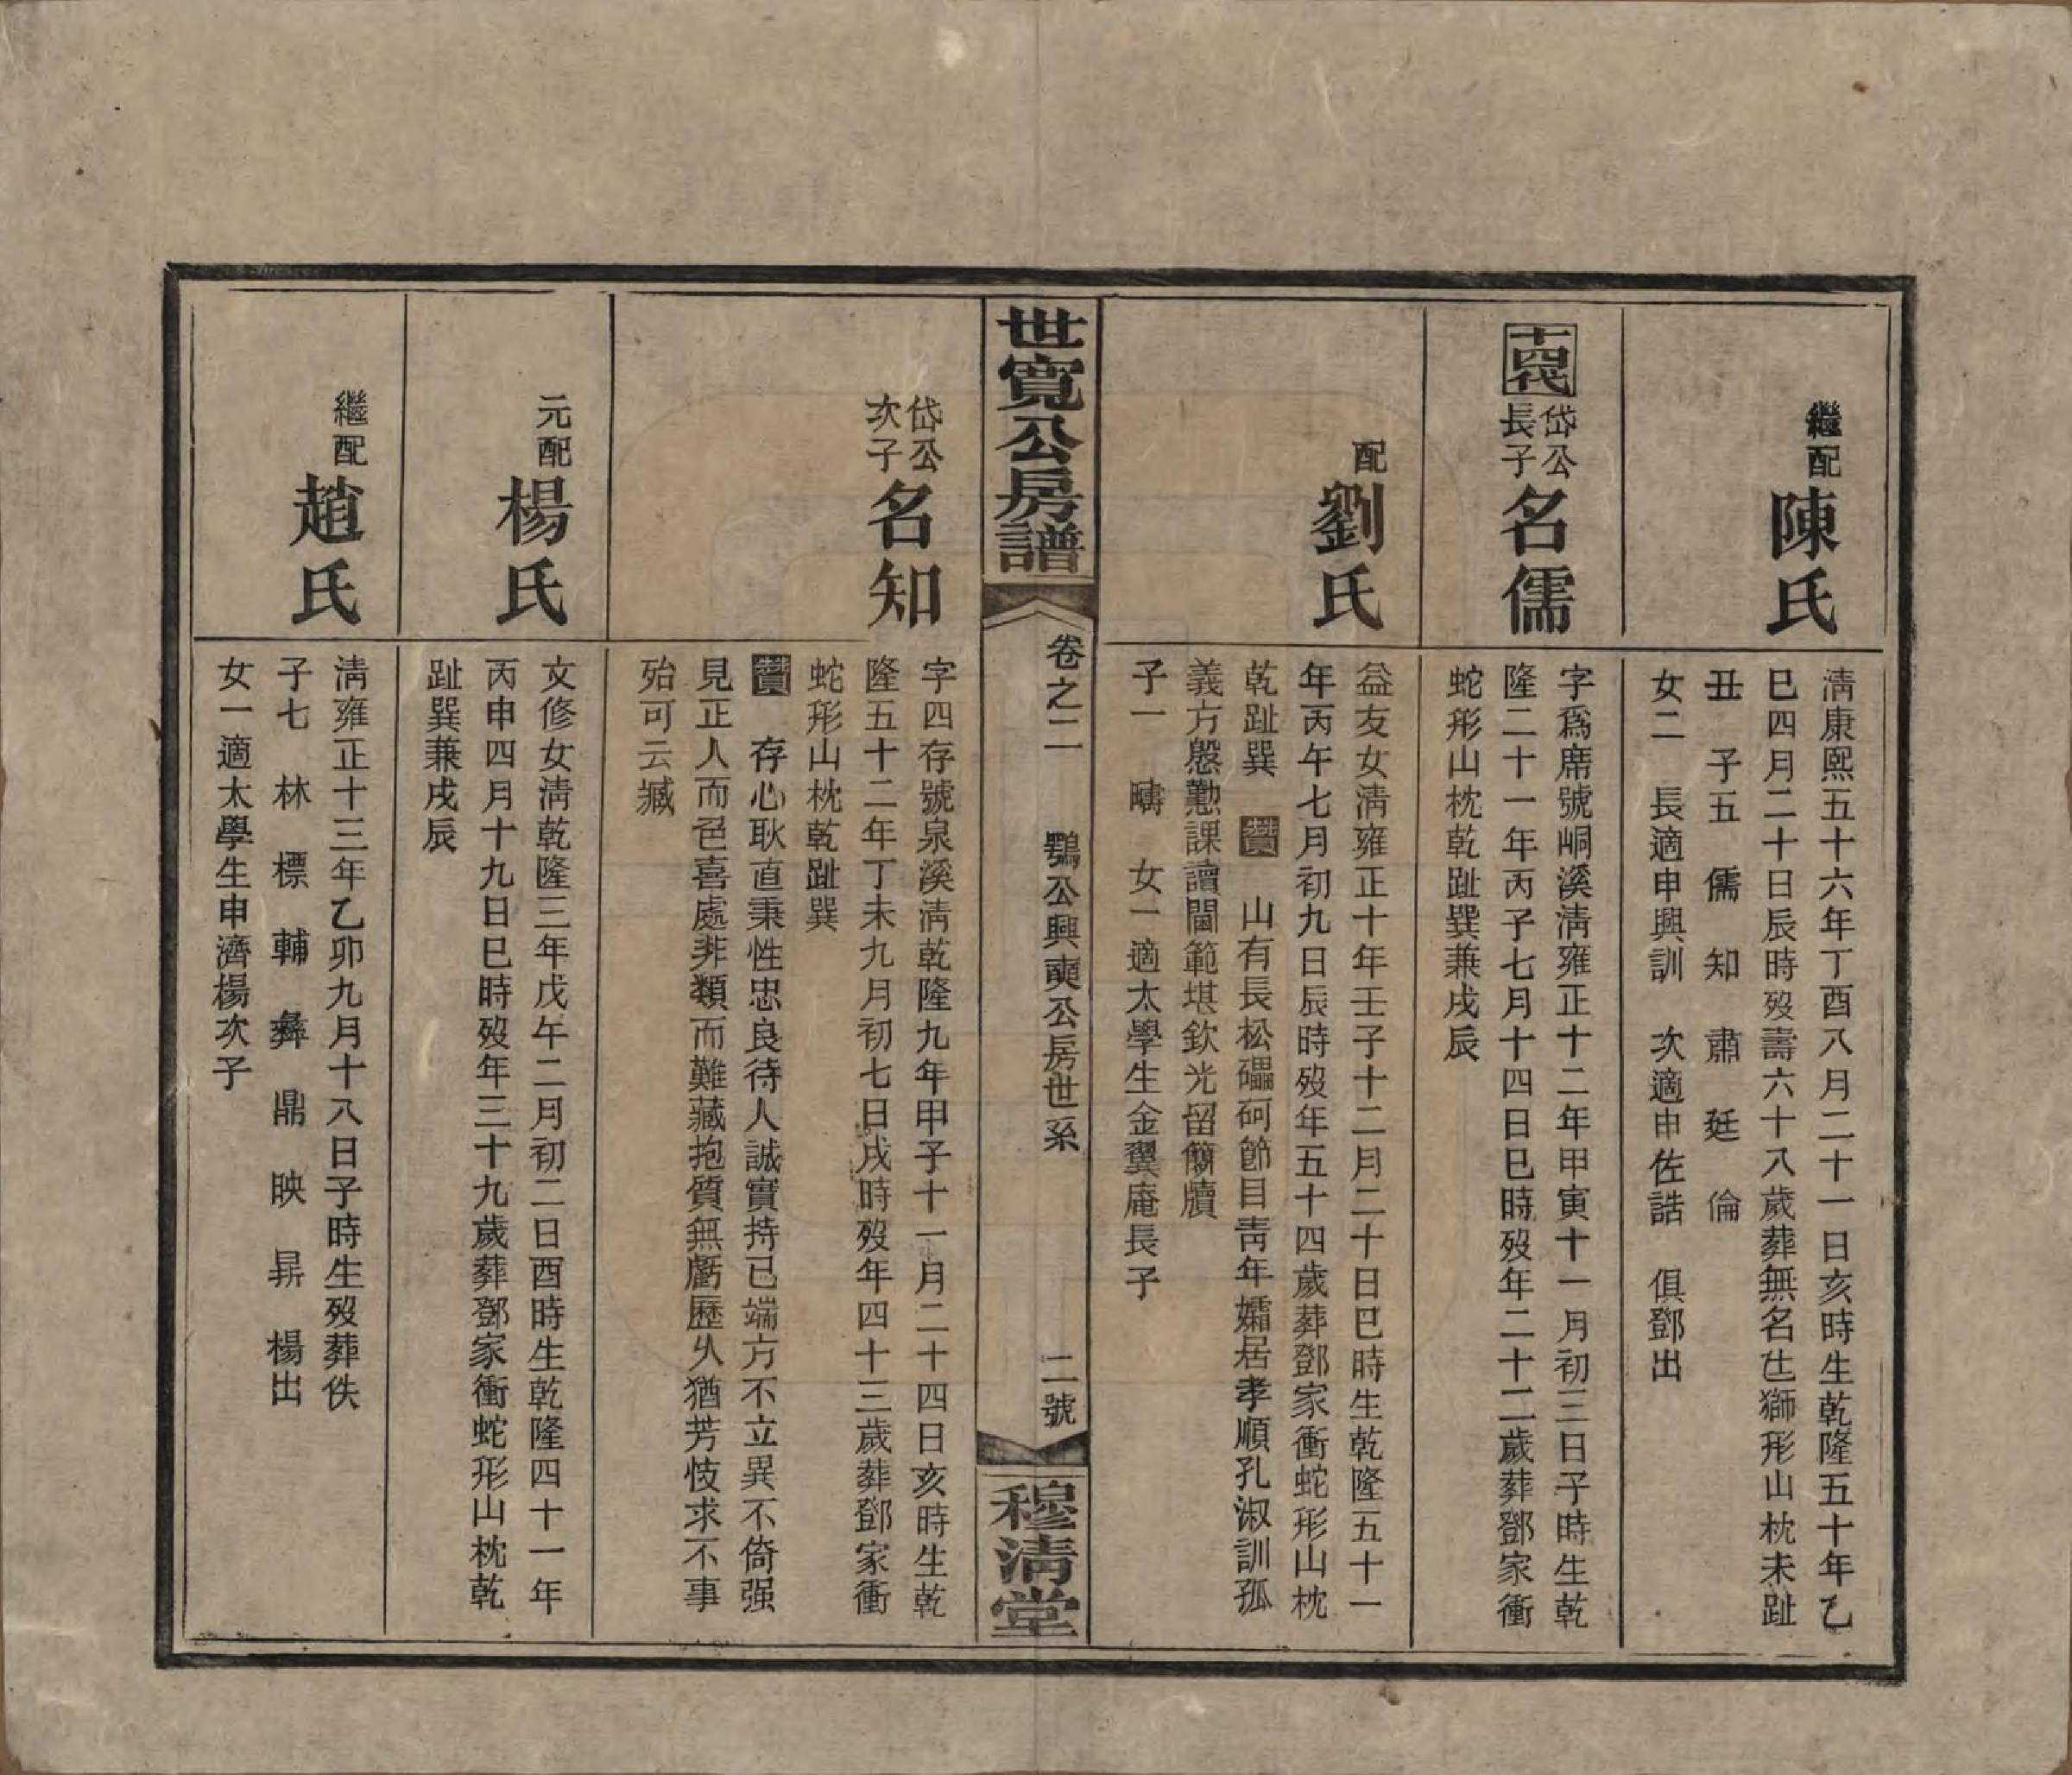 繼配
陳氏
淸康熙五十六年丁酉八月二十一日亥時生乾隆五十年乙
巳四月二十日辰時歿壽六十八歲葬無名㐌獅形山枕未趾
丑　子五　儒　知　肅　廷　倫
女二　長適申興訓　次適申佐誥　俱鄧出
十四代
岱公
長子
名儒
字爲席號峒溪淸雍正十二年甲寅十一月初三日子時生乾
隆二十一年丙子七月十四日巳時歿年二十二歲葬鄧家衝
蛇形山枕乾趾巽兼戌辰
配
劉氏
益友女淸雍正十年壬子十二月二十日巳時生乾隆五十一
年丙午七月初九日辰時歿年五十四歲葬鄧家衝蛇形山枕
乾趾巽　贊　山有長松礧砢節目靑年孀居孝順孔淑訓孤
義方慇懃課讀閫範堪欽光留簡牘
子一　疇　女一適太學生金翼庵長子
世寬公房譜
卷之二
鶚公興奭公房世系
二號
穆淸堂
岱公
次子
名知
字四存號泉溪淸乾隆九年甲子十一月二十四日亥時生乾
隆五十二年丁未九月初七日戌時歿年四十三歲葬鄧家衝
蛇形山枕乾趾巽
贊　存心耿直秉性忠良待人誠實持己端方不立異不倚强
見正人而色喜處非類而難藏抱質無虧歷久猶芳忮求不事
殆可云臧
元配
楊氏
文修女淸乾隆三年戊午二月初二日酉時生乾隆四十一年
丙申四月十九日巳時歿年三十九歲葬鄧家衝蛇形山枕乾
趾巽兼戌辰
繼配
趙氏
淸雍正十三年乙卯九月十八日子時生歿葬佚
子七　林　標　輔　彝　鼎　映　昪　楊出
女一適太學生申濟楊次子